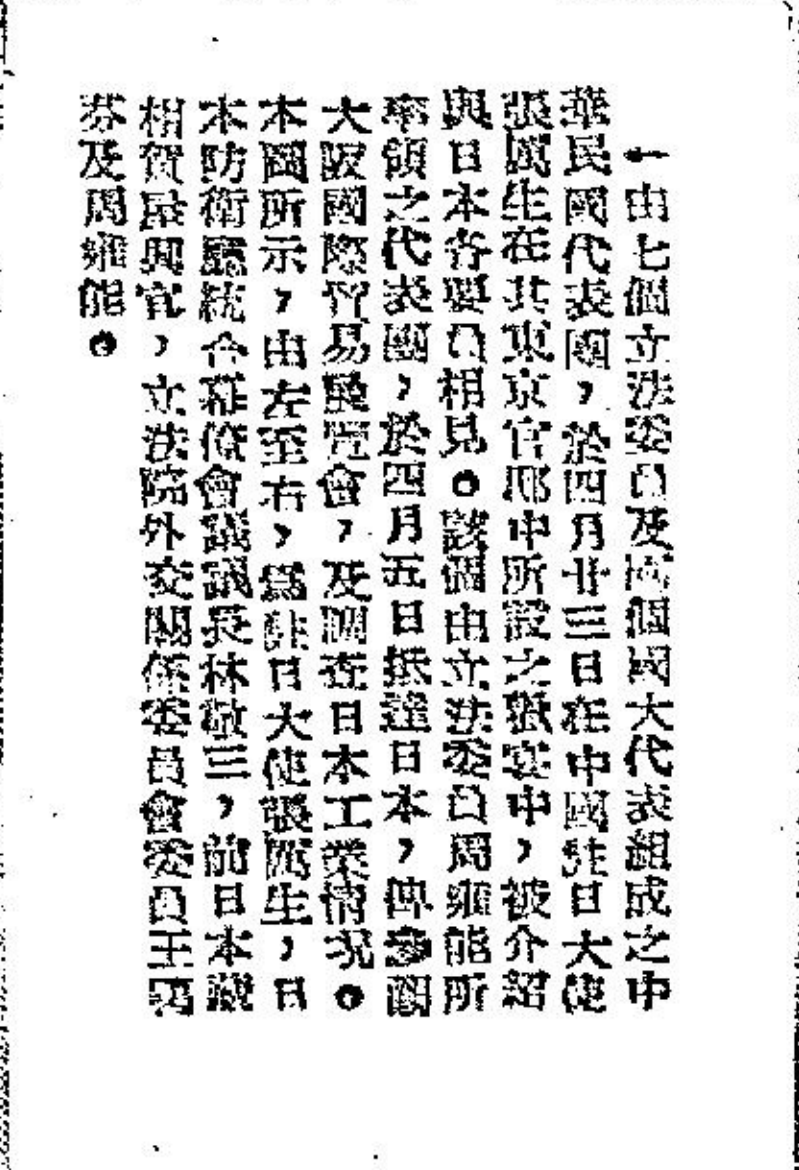 一由七個立法委員及兩個國大代表組成之中
華民國代表團，於四月廿三日在中國駐日大使
張厲生在其東京官邸中所設之歡宴中，被介紹
與日本各要員相見。該團由立法委員周雍能所
率領之代表團，於四月五日抵達日本，俾參觀
大阪國際貿易展覽會，及調查日本工業情況。
本圖所示，由左至右，為駐日大使張厲生，日
本防衛廳統合幕僚會議議長林敬三，前日本藏
相賀屋興宣，立法院外交關係委員會委員王
芬及周雍能。